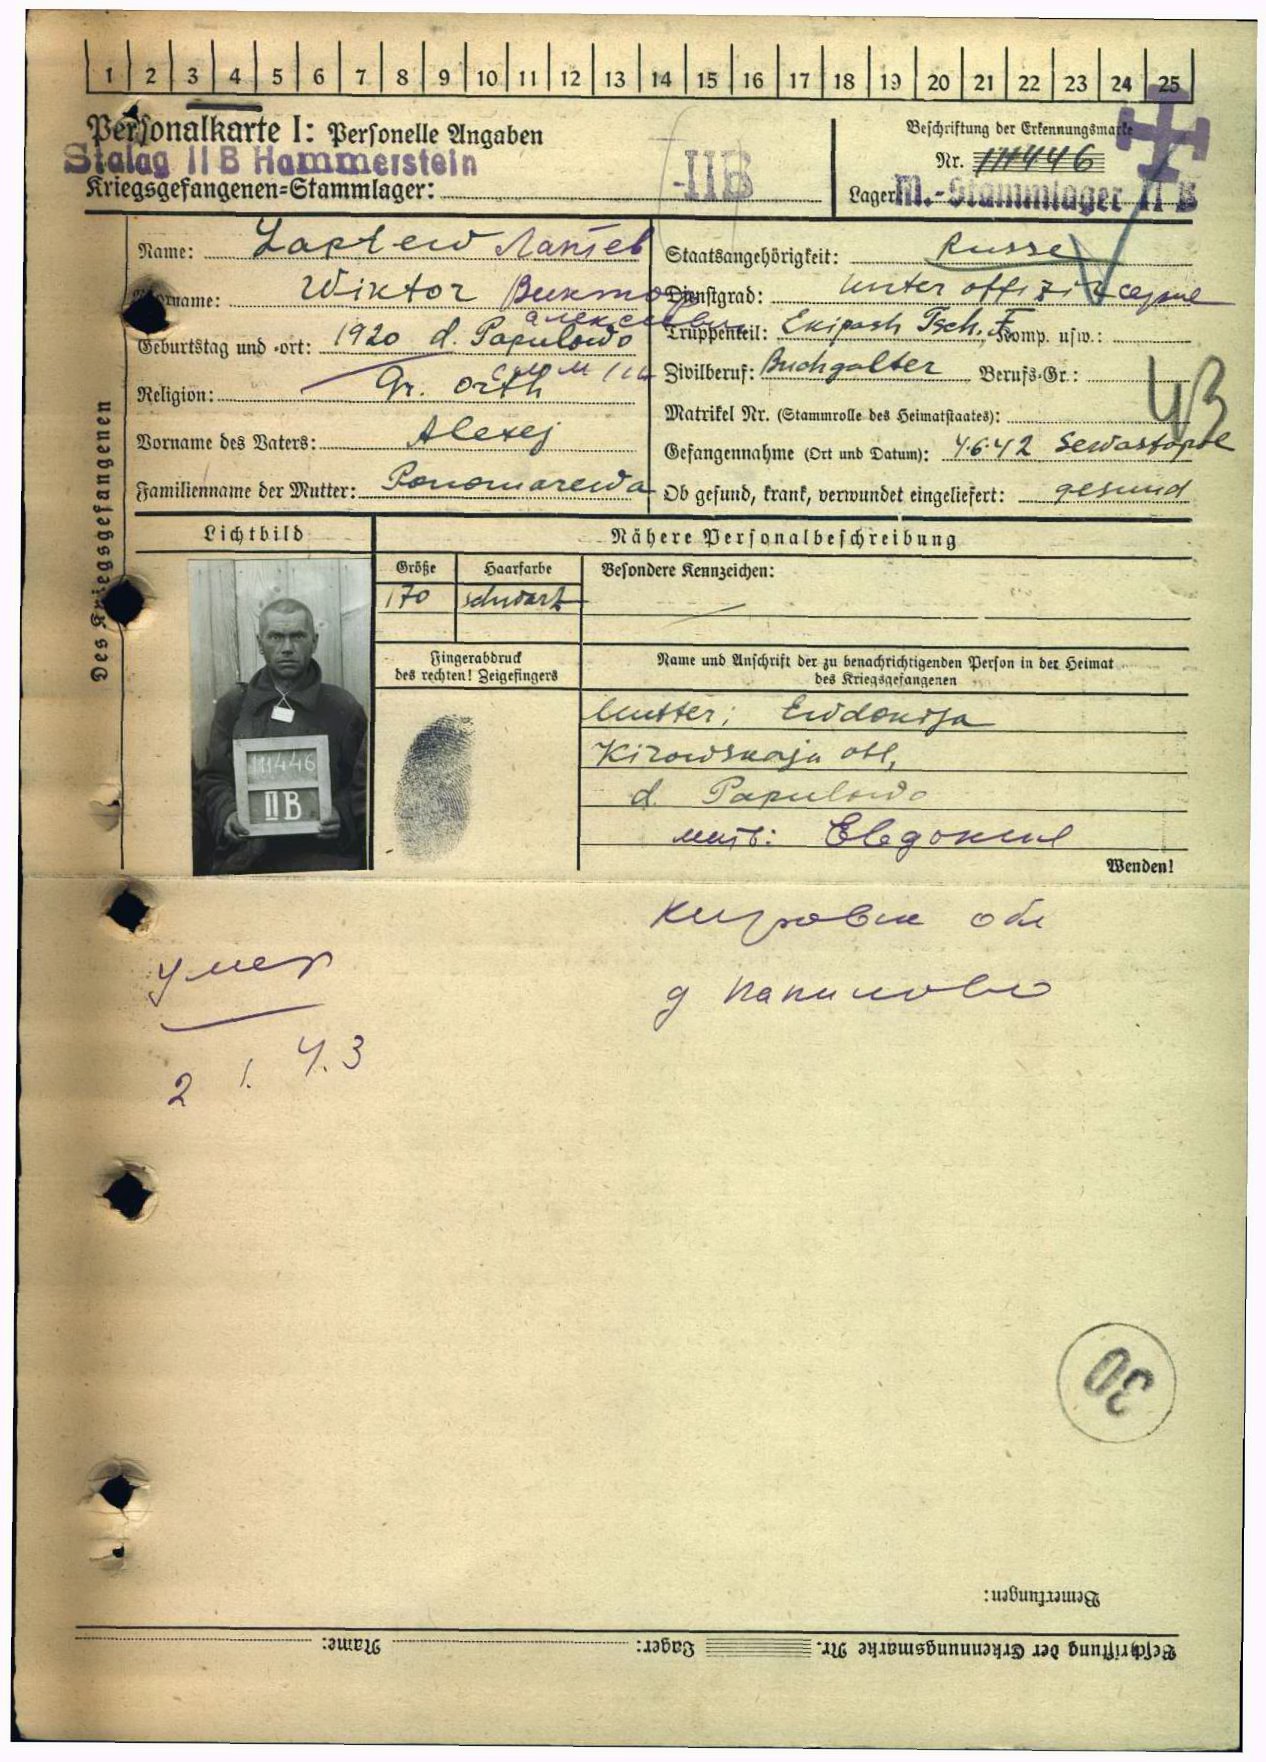 1 2 3 4 5 6 7 8 9 10 11 12 13 14 15 16 17 18 19 20 21 22 23 24 25
Personalkarte I: Personelle Angaben
Stalag II B Hammerstein
Kriegsgefangenen-Stammlager:
IIB
Beschriftung der Erkennungsmarke
Nr. 111446
Lager M.-Stammlager II B
Des Kriegsgefangenen
Name: Laptew Лаптев
Vorname: Wiktor Виктор
Алексеевич
Geburtstag und -ort: 1920 d. Papulowo
Religion: Gr. orth
Vorname des Vaters: Alexej
Familienname der Mutter: Ponomarewa
Staatsangehörigkeit: Russe
Dienstgrad: Unteroffizir
Truppenteil: Ekipash Tsch. F. Komp. usw.:
Zivilberuf: Buchgalter Berufs-Gr.:
Matrikel Nr. (Stammrolle des Heimatstaates):
Gefangennahme (Ort und Datum): 4.6.42 Sewastopol
Ob gesund, krank, verwundet eingeliefert: gesund
Lichtbild
Nähere Personalbeschreibung
Größe Haarfarbe Besondere Kennzeichen:
170 schwarz
111446
II B
Fingerabdruck
des rechten! Zeigefingers
Name und Anschrift der zu benachrichtigenden Person in der Heimat
des Kriegsgefangenen
Mutter: Ewdokija
Kirowskaja obl,
d. Papulowo
мать: Евдокия
Wenden!
Кировск обл
д Папилово
умер
2 1. 43
30
Bemerkungen:
Beschriftung der Erkennungsmarke Nr. Lager: Name: